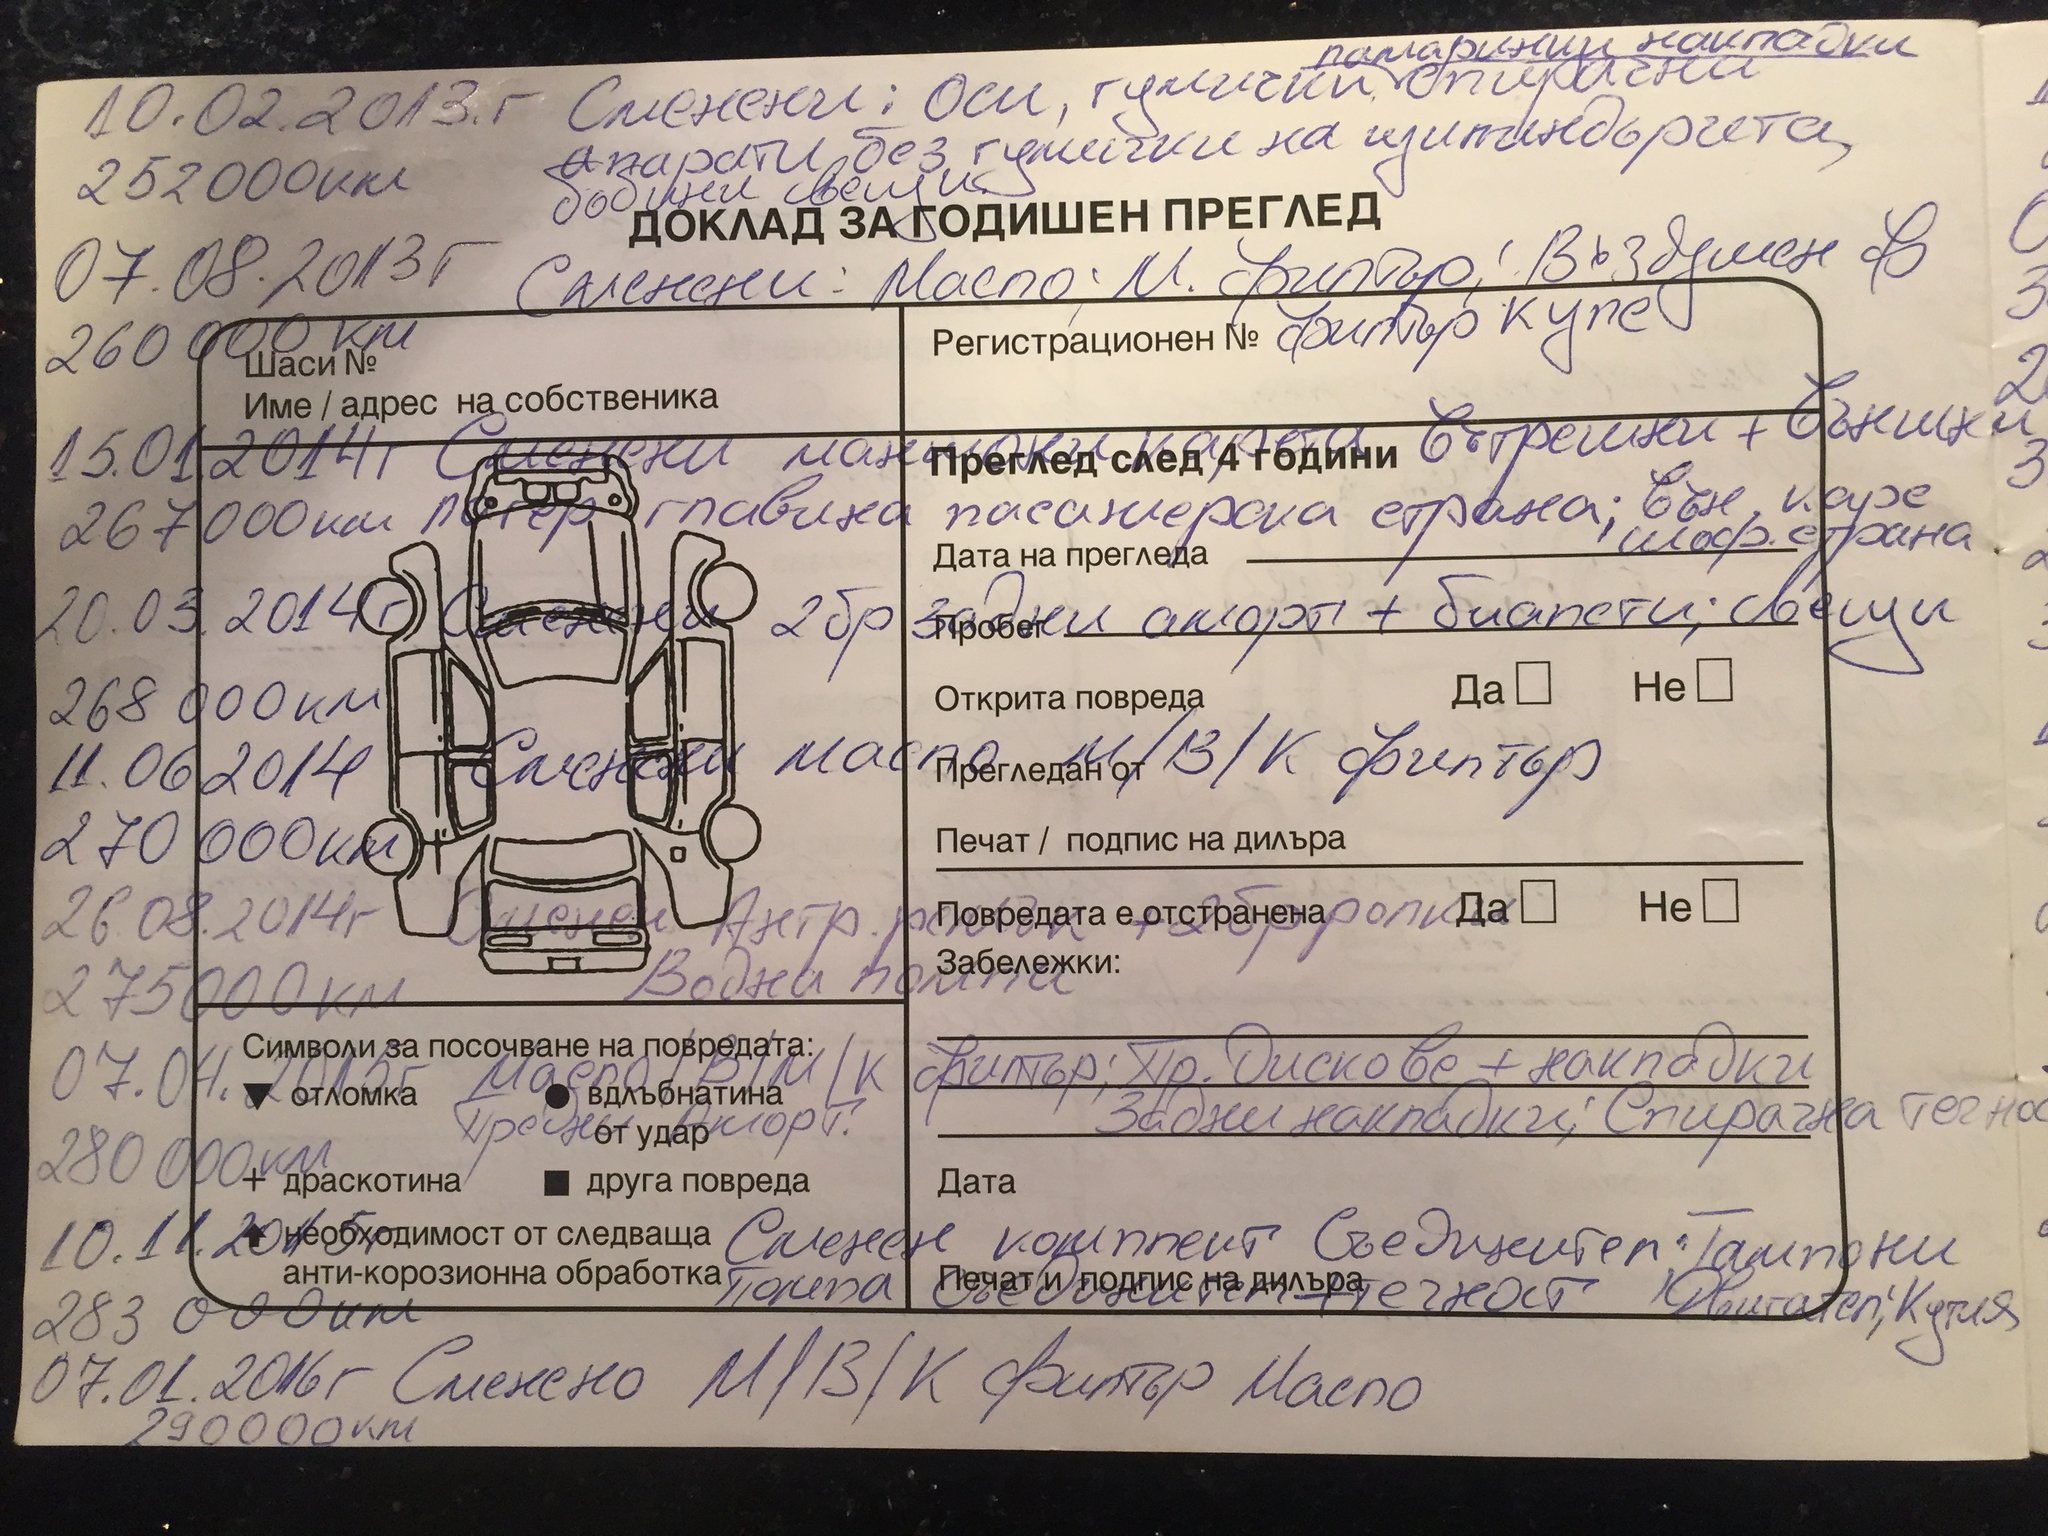 накладки
10.02.2013.г Сменени: Оси, гумички спирачни
252000км апарати без гумички на
свещи
ДОКЛАД ЗА ГОДИШЕН ПРЕГЛЕД
07.08.2013г Сменени: Масло; М. филтър; Въздушен Ф
260 000 км филтър купе
Шаси №
Регистрационен №
Име / адрес на собственика
15.01.2014г Сменени маншони карета вътрешни + външни
Преглед след 4 години
267000км лагер главина пасажерска страна; външ. каре
шоф. страна
Дата на прегледа
20.03.2014г Сменени 2бр задни аморт + биалети; свещи
Пробег
268 000км
Открита повреда Да Не
11.06 2014 Сменени масло М/В/К филтър
Прегледан от
270 000км
Печат / подпис на дилъра
26 08.2014г Сменен Ангр. ремък + 2бр ролки
Повредата е отстранена Да Не
275000км Водна помпа
Забележки:
Символи за посочване на повредата:
07.04.2015г Масло/В/М/К филтър; Пр. Дискове + накладки
отломка вдлъбнатина
от удар
280 000км Предни Аморт. Задни накладки; Спирачна течнос
+ драскотина друга повреда
Дата
10.11.2015г Сменен комплект Съединител; Тампони
необходимост от следваща
анти-корозионна обработка
Печат и подпис на дилъра
283 000км Помпа съединител + течност Двигател; Кутия
07.01.2016г Сменено М/В/К филтър Масло
290000км